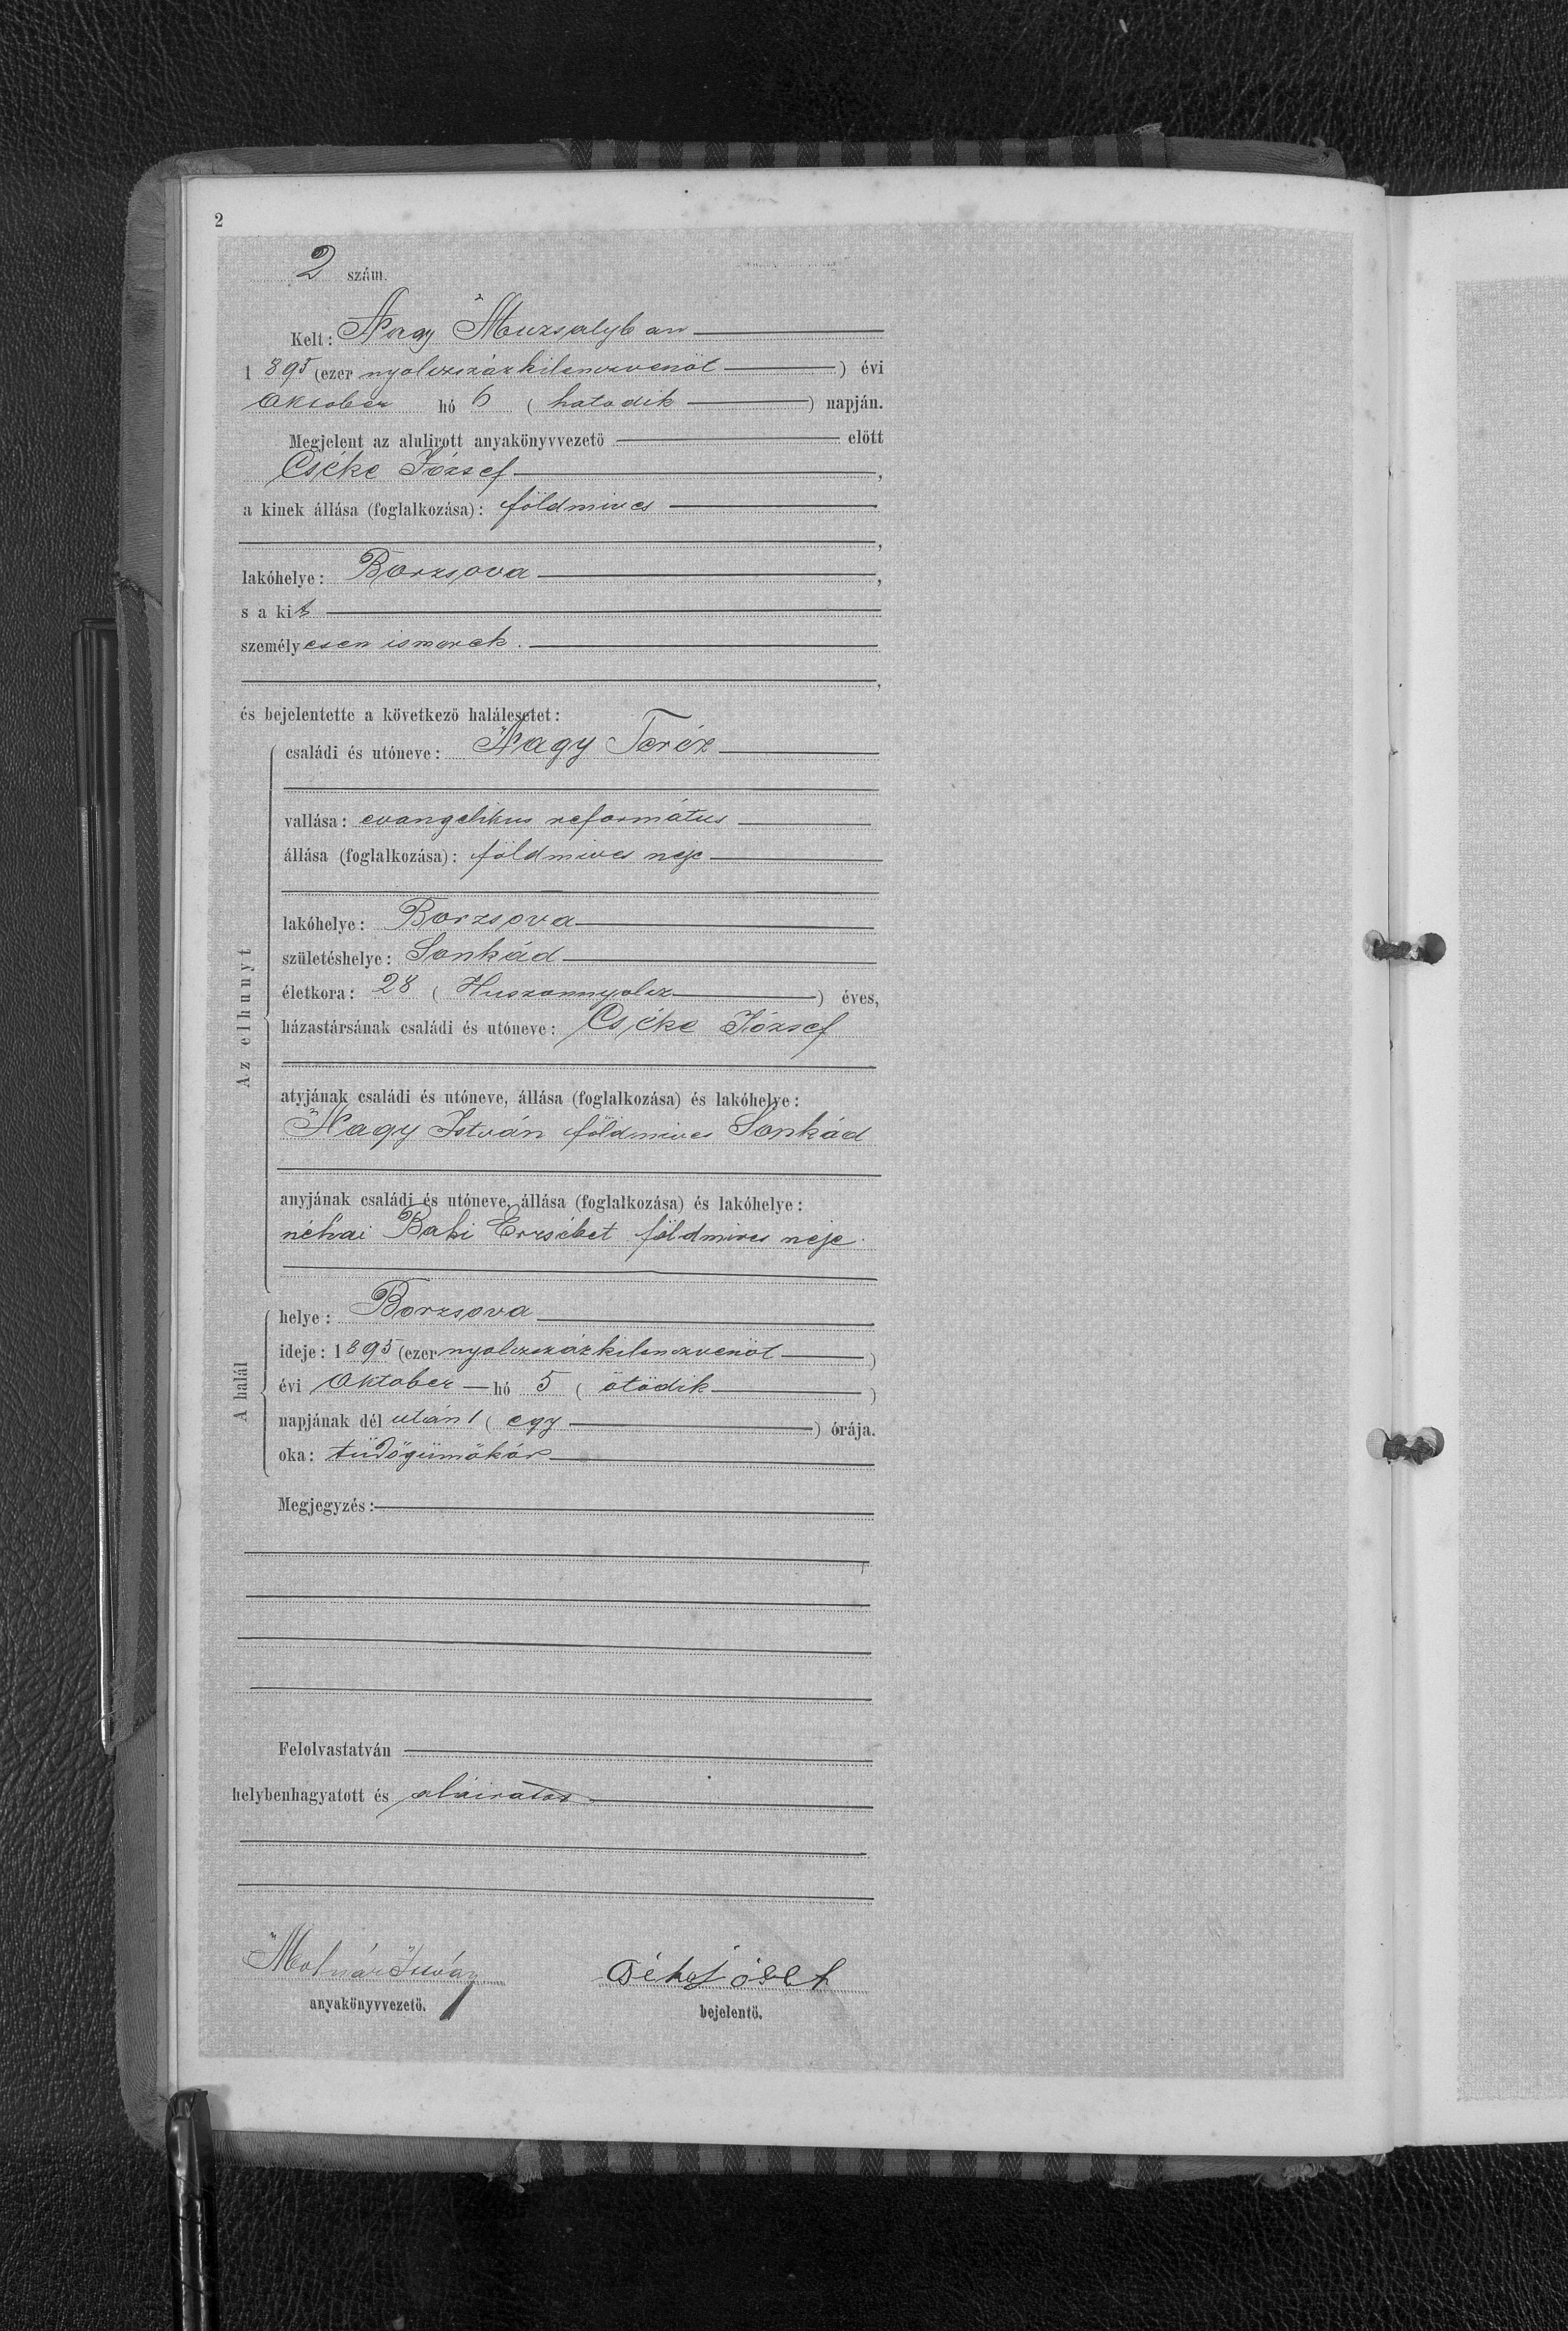 2
2 szám.
Kelt: Nagy Muzsalyban
1895 (ezer nyolczszázkilenczvenöt) évi
Oktober hó 6 (hatodik) napján.
Megjelent az alulirott anyakönyvvezetö elött
Cséke József,
a kinek állása (foglalkozása): földmives
,
lakóhelye: Borzsova,
s a kit
személyesen ismerek.
,
és bejelentette a következö halálesetet:
Az elhunyt
családi és utóneve: Nagy Teréz
vallása: evangelikus református
állása (foglalkozása): földmives neje
lakóhelye: Borzsova
születéshelye: Sonkád
életkora: 28 (Huszonnyolcz) éves,
házastársának családi és utóneve: Cséke József
atyjának családi és utóneve, állása (foglalkozása) és lakóhelye:
Nagy István földmives Sonkád
anyjának családi és utóneve, állása (foglalkozása) és lakóhelye:
néhai Baki Erzsébet földmives neje.
A halál
helye: Borzsova
ideje: 1895 (ezer nyolczszázkilenczvenöt)
évi Oktober hó 5 (ötödik)
napjának dél után 1 (egy) órája.
oka: tüdőgümőkór
Megjegyzés:
Felolvastatván
helybenhagyatott és aláiratot
Molnár István
anyakönyvvezetö.
bejelentö.